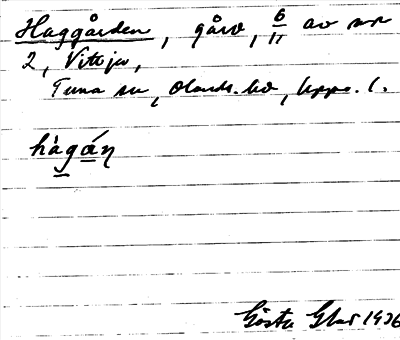 Haggården, gård, 6/11 av nr
2, Vittja,
Tuna sn, Olands hd, Upps. l.
hàgán
Gösta Glad 1936